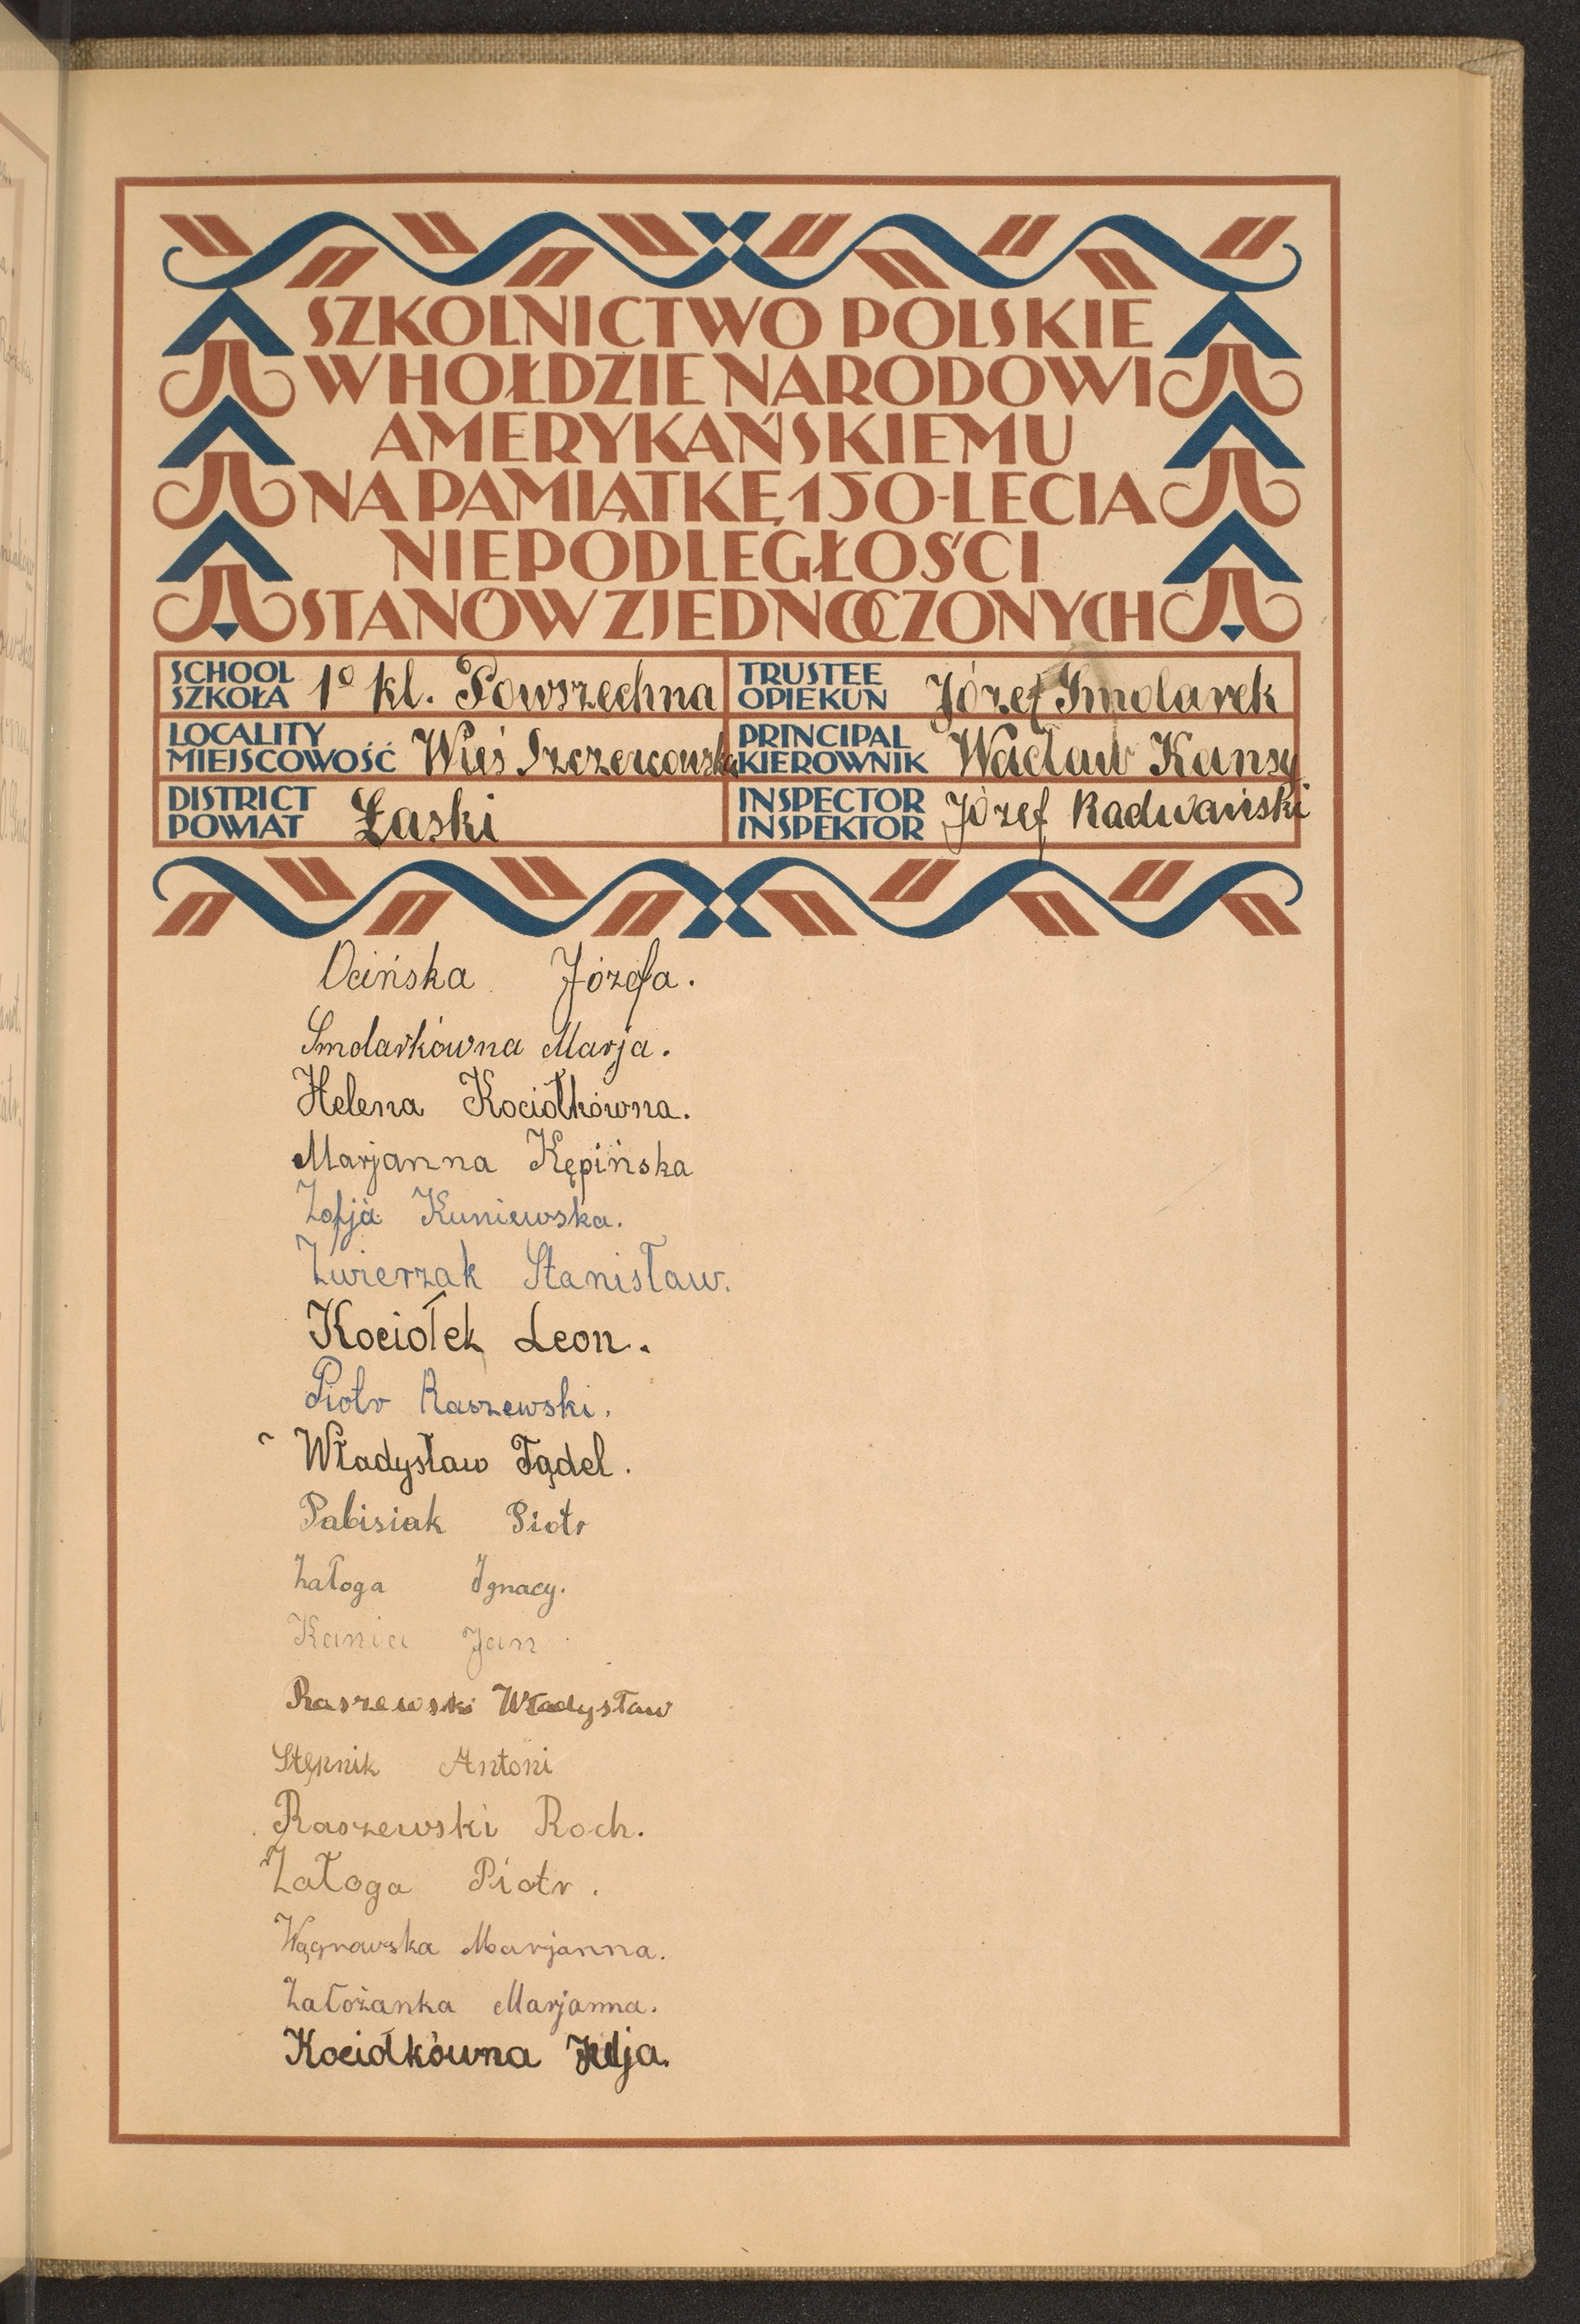 SZKOLNICTWO POLSKIE
W HOŁDZIE NARODOWI
AMERYKAŃSKIEMU
NA PAMIĄTKĘ 150-LECIA
NIEPODLEGŁOŚCI
STANÓW ZJEDNOCZONYCH
SCHOOL
SZKOŁA 1º kl. Powszechna
TRUSTEE
OPIEKUN Józef Smolarek
LOCALITY
MIEJSCOWOŚĆ Wieś Szczercowska
PRINCIPAL
KIEROWNIK Wacław Kansy
DISTRICT
POWIAT Łaski
INSPECTOR
INSPEKTOR Józef Radwański
Ocińska Józefa.
Smolarkówna Marja.
Helena Kociołkówna.
Marjanna Kępińska
Zofja Kuniewska.
Zwierzak Stanisław.
Kociołek Leon.
Piotr Raszewski.
Władysław Fądel.
Pabisiak Piotr
Załoga Ignacy.
Kania Jan
Raszewski Władysław
Stępnik Antoni
Raszewski Roch.
Załoga Piotr.
Wągrowska Marjanna.
Założanka Marjanna.
Kociołkówna